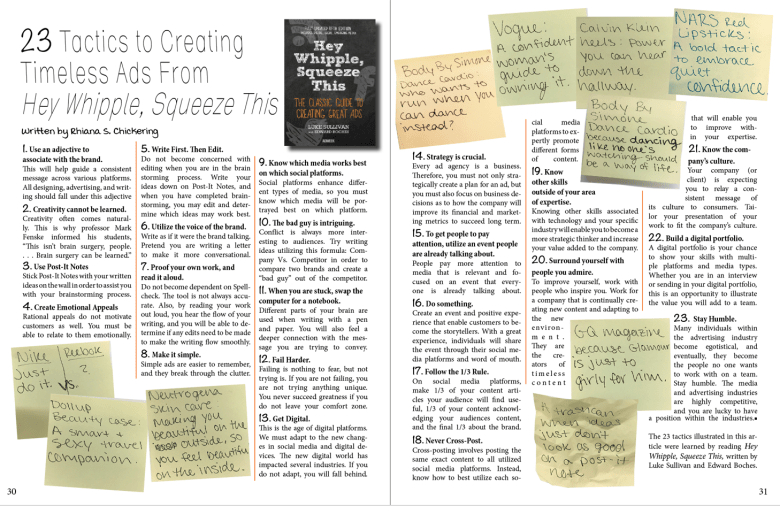 23 Tactics to Creating
Timeless Ads From
Hey Whipple, Squeeze This
Written by Rhiana S. Chickering
Hey
Whipple,
Squeeze
This
THE CLASSIC GUIDE TO
CREATING GREAT ADS
LUKE SULLIVAN
1. Use an adjective to
associate with the brand.
This will help guide a consistent
message across various platforms.
All designing, advertising, and writ-
ing should fall under this adjective
2. Creativity cannot be learned.
Creativity often comes natural-
ly. This is why professor Mark
Fenske informed his students,
“This isn’t brain surgery, people.
. . . Brain surgery can be learned.”
3. Use Post-It Notes
Stick Post-It Notes with your written
ideas on the wall in order to assist you
with your brainstorming process.
4. Create Emotional Appeals
Rational appeals do not motivate
customers as well. You must be
able to relate to them emotionally.
5. Write First. Then Edit.
Do not become concerned with
editing when you are in the brain
storming process. Write your
ideas down on Post-It Notes, and
when you have completed brain-
storming, you may edit and deter-
mine which ideas may work best.
6. Utilize the voice of the brand.
Write as if it were the brand talking.
Pretend you are writing a letter
to make it more conversational.
7. Proof your own work, and
read it aloud.
Do not become dependent on Spell-
check. The tool is not always accu-
rate. Also, by reading your work
out loud, you hear the flow of your
writing, and you will be able to de-
termine if any edits need to be made
to make the writing flow smoothly.
8. Make it simple.
Simple ads are easier to remember,
and they break through the clutter.
9. Know which media works best
on which social platforms.
Social platforms enhance differ-
ent types of media, so you must
know which media will be por-
trayed best on which platform.
10. The bad guy is intriguing.
Conflict is always more inter-
esting to audiences. Try writing
ideas utilizing this formula: Com-
pany Vs. Competitor in order to
compare two brands and create a
“bad guy” out of the competitor.
11. When you are stuck, swap the
computer for a notebook.
Different parts of your brain are
used when writing with a pen
and paper. You will also feel a
deeper connection with the mes-
sage you are trying to convey.
12. Fail Harder.
Failing is nothing to fear, but not
trying is. If you are not failing, you
are not trying anything unique.
You never succeed greatness if you
do not leave your comfort zone.
13. Get Digital.
This is the age of digital platforms.
We must adapt to the new chang-
es in social media and digital de-
vices. The new digital world has
impacted several industries. If you
do not adapt, you will fall behind.
Nike
Just
do it.
vs.
Reebok
?
Dollup
Beauty case:
A smart +
sexy travel
companion.
Neutrogena
Skin care
Making you
beautiful on the
outside, so
you feel beautiful
on the inside.
30
Body By Simone
Dance Cardio:
who wants to
run when you
can dance
instead?
Vogue:
A confident
woman's
guide to
owning it.
Calvin Klein
heels: power
you can hear
down the
hallway.
NARS Red
Lipsticks:
A bold tactic
to embrace
quiet
confidence.
Body By
Simone
Dance Cardio
because dancing
like no one's
watching should
be a way of life.
14. Strategy is crucial.
Every ad agency is a business.
Therefore, you must not only stra-
tegically create a plan for an ad, but
you must also focus on business de-
cisions as to how the company will
improve its financial and market-
ing metrics to succeed long term.
15. To get people to pay
attention, utilize an event people
are already talking about.
People pay more attention to
media that is relevant and fo-
cused on an event that every-
one is already talking about.
16. Do something.
Create an event and positive expe-
rience that enable customers to be-
come the storytellers. With a great
experience, individuals will share
the event through their social me-
dia platforms and word of mouth.
17. Follow the 1/3 Rule.
On social media platforms,
make 1/3 of your content arti-
cles your audience will find use-
ful, 1/3 of your content acknowl-
edging your audiences content,
and the final 1/3 about the brand.
18. Never Cross-Post.
Cross-posting involves posting the
same exact content to all utilized
social media platforms. Instead,
know how to best utilize each so-
cial media
platforms to ex-
pertly promote
different forms
of content.
19. Know
other skills
outside of your area
of expertise.
Knowing other skills associated
with technology and your specific
industry will enable you to become a
more strategic thinker and increase
your value added to the company.
20. Surround yourself with
people you admire.
To improve yourself, work with
people who inspire you. Work for
a company that is continually cre-
ating new content and adapting to
the new
environ-
ment.
They are
the cre-
ators of
timeless
content
that will enable you
to improve with-
in your expertise.
21. Know the com-
pany’s culture.
Your company (or
client) is expecting
you to relay a con-
sistent message of
its culture to consumers. Tai-
lor your presentation of your
work to fit the company’s culture.
22. Build a digital portfolio.
A digital portfolio is your chance
to show your skills with multi-
ple platforms and media types.
Whether you are in an interview
or sending in your digital portfolio,
this is an opportunity to illustrate
the value you will add to a team.
23. Stay Humble.
Many individuals within
the advertising industry
become egotistical, and
eventually, they become
the people no one wants
to work with on a team.
Stay humble. The media
and advertising industries
are highly competitive,
and you are lucky to have
a position within the industries.
GQ magazine
because Glamour
is just to
girly for him.
A trashcan
when ideas
just don't
look as good
on a post-it
note
The 23 tactics illustrated in this ar-
ticle were learned by reading Hey
Whipple, Squeeze This, written by
Luke Sullivan and Edward Boches.
31